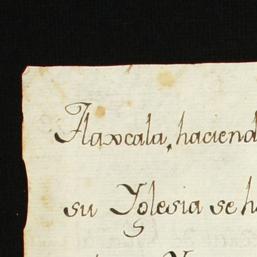 Tlaxcala, haciend
su Yglesia se h